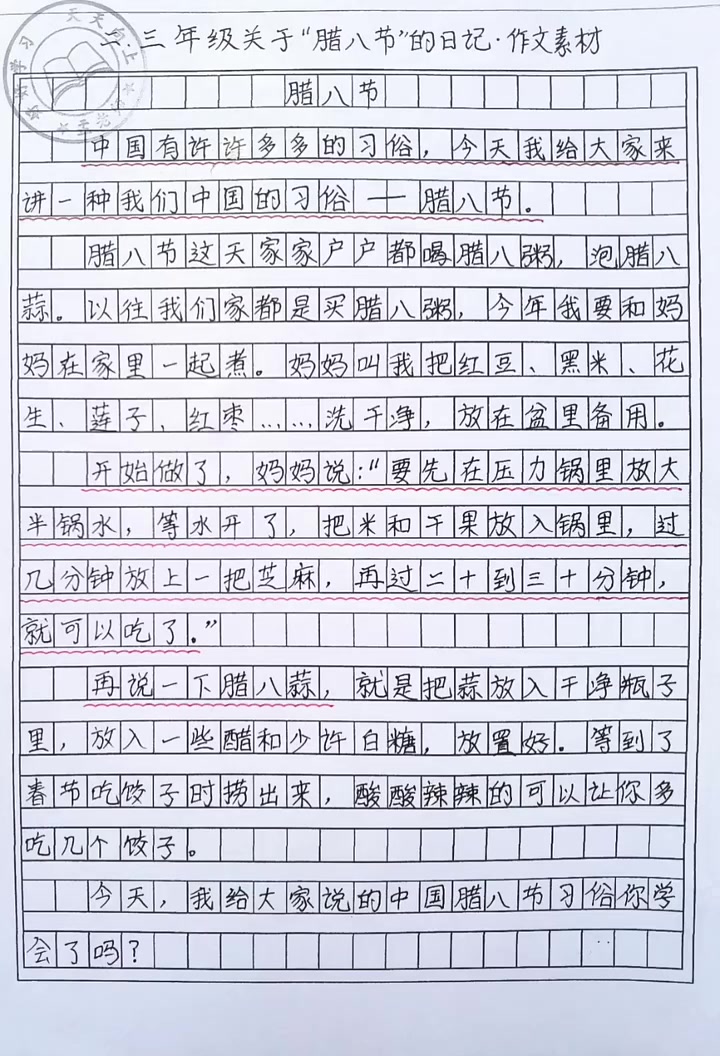 二·三年级关于“腊八节”的日记·作文素材
腊八节
中国有许许多多的习俗，今天我给大家来
讲一种我们中国的习俗——腊八节。
腊八节这天家家户户都喝腊八粥，泡腊八
蒜。以往我们家都是买腊八粥，今年我要和妈
妈在家里一起煮。妈妈叫我把红豆、黑米、花
生、莲子、红枣……洗干净，放在盆里备用。
开始做了，妈妈说：“要先在压力锅里放大
半锅水，等水开了，把米和干果放入锅里，过
几分钟放上一把芝麻，再过二十到三十分钟，
就可以吃了。”
再说一下腊八蒜，就是把蒜放入干净瓶子
里，放入一些醋和少许白糖，放置好。等到了
春节吃饺子时捞出来，酸酸辣辣的可以让你多
吃几个饺子。
今天，我给大家说的中国腊八节习俗你学
会了吗？